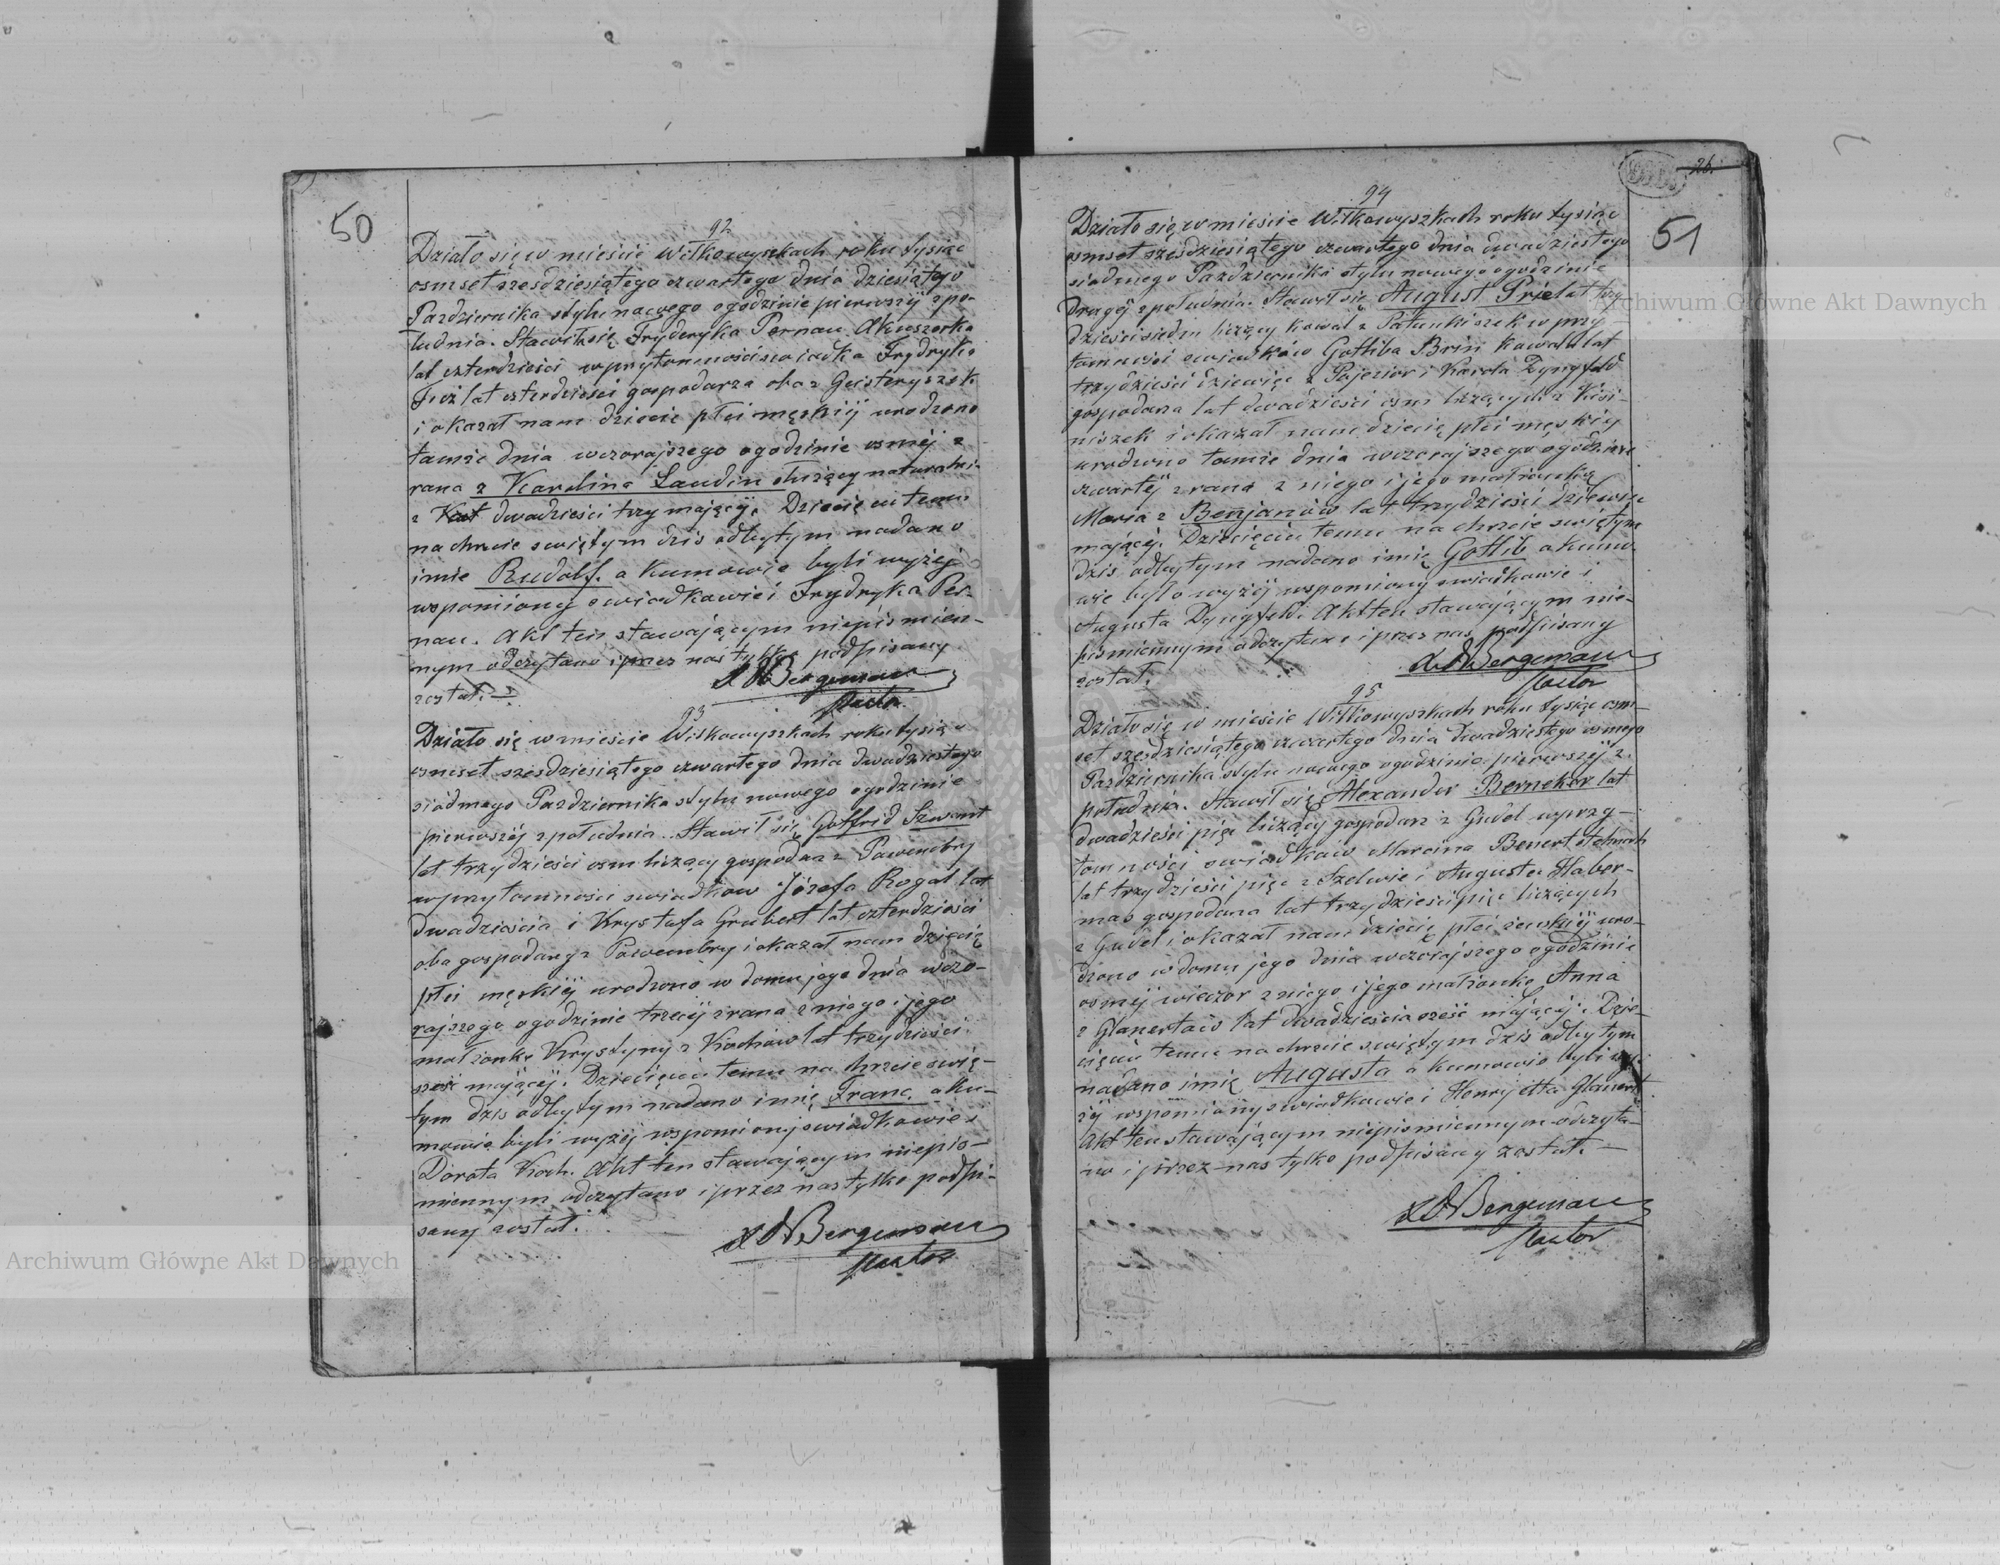 50
92
Działo się w mieście Wiłkowyszkach roku tysiąc
osmset szesdziesiątego czwartego dnia dziesiątego
Pazdziernika stylu nowego ogodzinie pierwszij zpo-
łudnia. Stawiła się Frydryka Pernau Akuszerka
lat czterdzieści wprzytomności swiadka Frydryka
lat czterdzieści gospodarza oba z Geisteryszek
i okazał nam dziecie płci męskiij urodzono
tamże dnia wczorajszego ogodzinie osmej z
rana z Karolina Laudin służący
z dwadzieści trzy mającij. Dziecięciu temu
na chrzcie swiętym dzis odbytym nadano
imie Rudolf. a Kumowie byli wyżej
wspomiony swiadkowie i Frydryka Per-
nau. Akt ten stawającym niepismien-
nym odczytano i przez nas tylko podpisany
został.
Bergemann
Pastor
93
Działo się w mieście Wiłkowyszkach roku tysiąc
osmset szesdziesiątego czwartego dnia dwudziestego
siódmego Pazdziernika stylu nowego ogodzinie
pierwszéj zpołudnia. Stawił się Gotfrid Szwant
lat trzydzieści osm liczący gospodarz z Pawembry
wprzytomności swiadkow Józefa Rogal lat
dwadzieścia i Krystofa Grubert lat czterdzieści
oba gospodarzy z Pawembry i okazał nam dziecię
płci męskiij urodzono w domu jego dnia wczo-
rajszego ogodzinie trzecij zrana z niego i jego
małżonki Krystyny z Kochów lat trzydzieści
szesć mającéj. Dziecięciu temu na chrzcie swię-
tym dzis odbytym nadano imię Franc aku-
mowie byli wyżéj wspomiony swiadkowie i
Dorota Koch. Akt ten stawającym niepis-
miennym odczytano i przez nas tylko podpi-
sany został.
Bergemann
Pastor
26
51
94
Działo się w mieście Wiłkowyszkach roku tysiąc
osmset szesdziesiątego czwartego dnia dwudziestego
siódmego Pazdziernika stylu nowego ogodzinie
Drugéj zpołudnia. Stawił się August Prielat trzy
dzieści siedm liczący kowal z w przy-
tomności swiadków Gotliba Brin kowala lat
trzydzieści dziewięć z Pojezior i Karola Dyngfeld
gospodarza lat dwadzieści osm liczących z
niszek i okazał nam dziecię płci męskiéj
urodzono tamże dnia wczorajszego ogodzinie
czwartéj zrana z niego i jego małżonką
Maria z Benjanów lat trzydzieści dziewięć
mającéj. Dziecięciu temu na chrzcie swiętym
dzis odbytym nadano imię Gotlib akumo-
wie było wyżéj wspomiony swiadkowie i
Augusta Dyngfeld. Akt ten stawającym nie-
pismiennym odczytano i przez nas podpisany
został.
Bergemann
Pastor
95
Działo się w mieście Wiłkowyszkach roku tysiąc osm-
set szesdziesiątego czwartego dnia dwadziestego osmego
Pazdziernika stylu nowego ogodzinie pierwszéj z
południa. Stawił się Alexander Bernekar lat
dwadzieści pięć liczący gospodarz z Gudel wprzy-
tomności swiadków Marcina Benert stelmach
lat trzydzieści pięć z Szelwie i Augusta Haber-
man gospodarza lat trzydzieści pięć liczących
z Gudel i okazał nam dziecię płci żeńskiéj uro-
dzono w domu jego dnia wczorajszego ogodzinie
osméj wieczor z niego i jego małżonka Anna
z Glanertów lat dwadzieścia sześć mającéj. Dzie-
cięciu temu na chrzcie swiętym dzis odbytym
nadano imię Augusta a kumowie byli wyż-
żéj wspomiony swiadkowie i Henryetta Glanert
Akt ten stawającym niepismiennym odczyta-
no i przez nas tylko podpisany został. —
Bergemann
Pastor
Archiwum Główne Akt Dawnych
Archiwum Główne Akt Dawnych